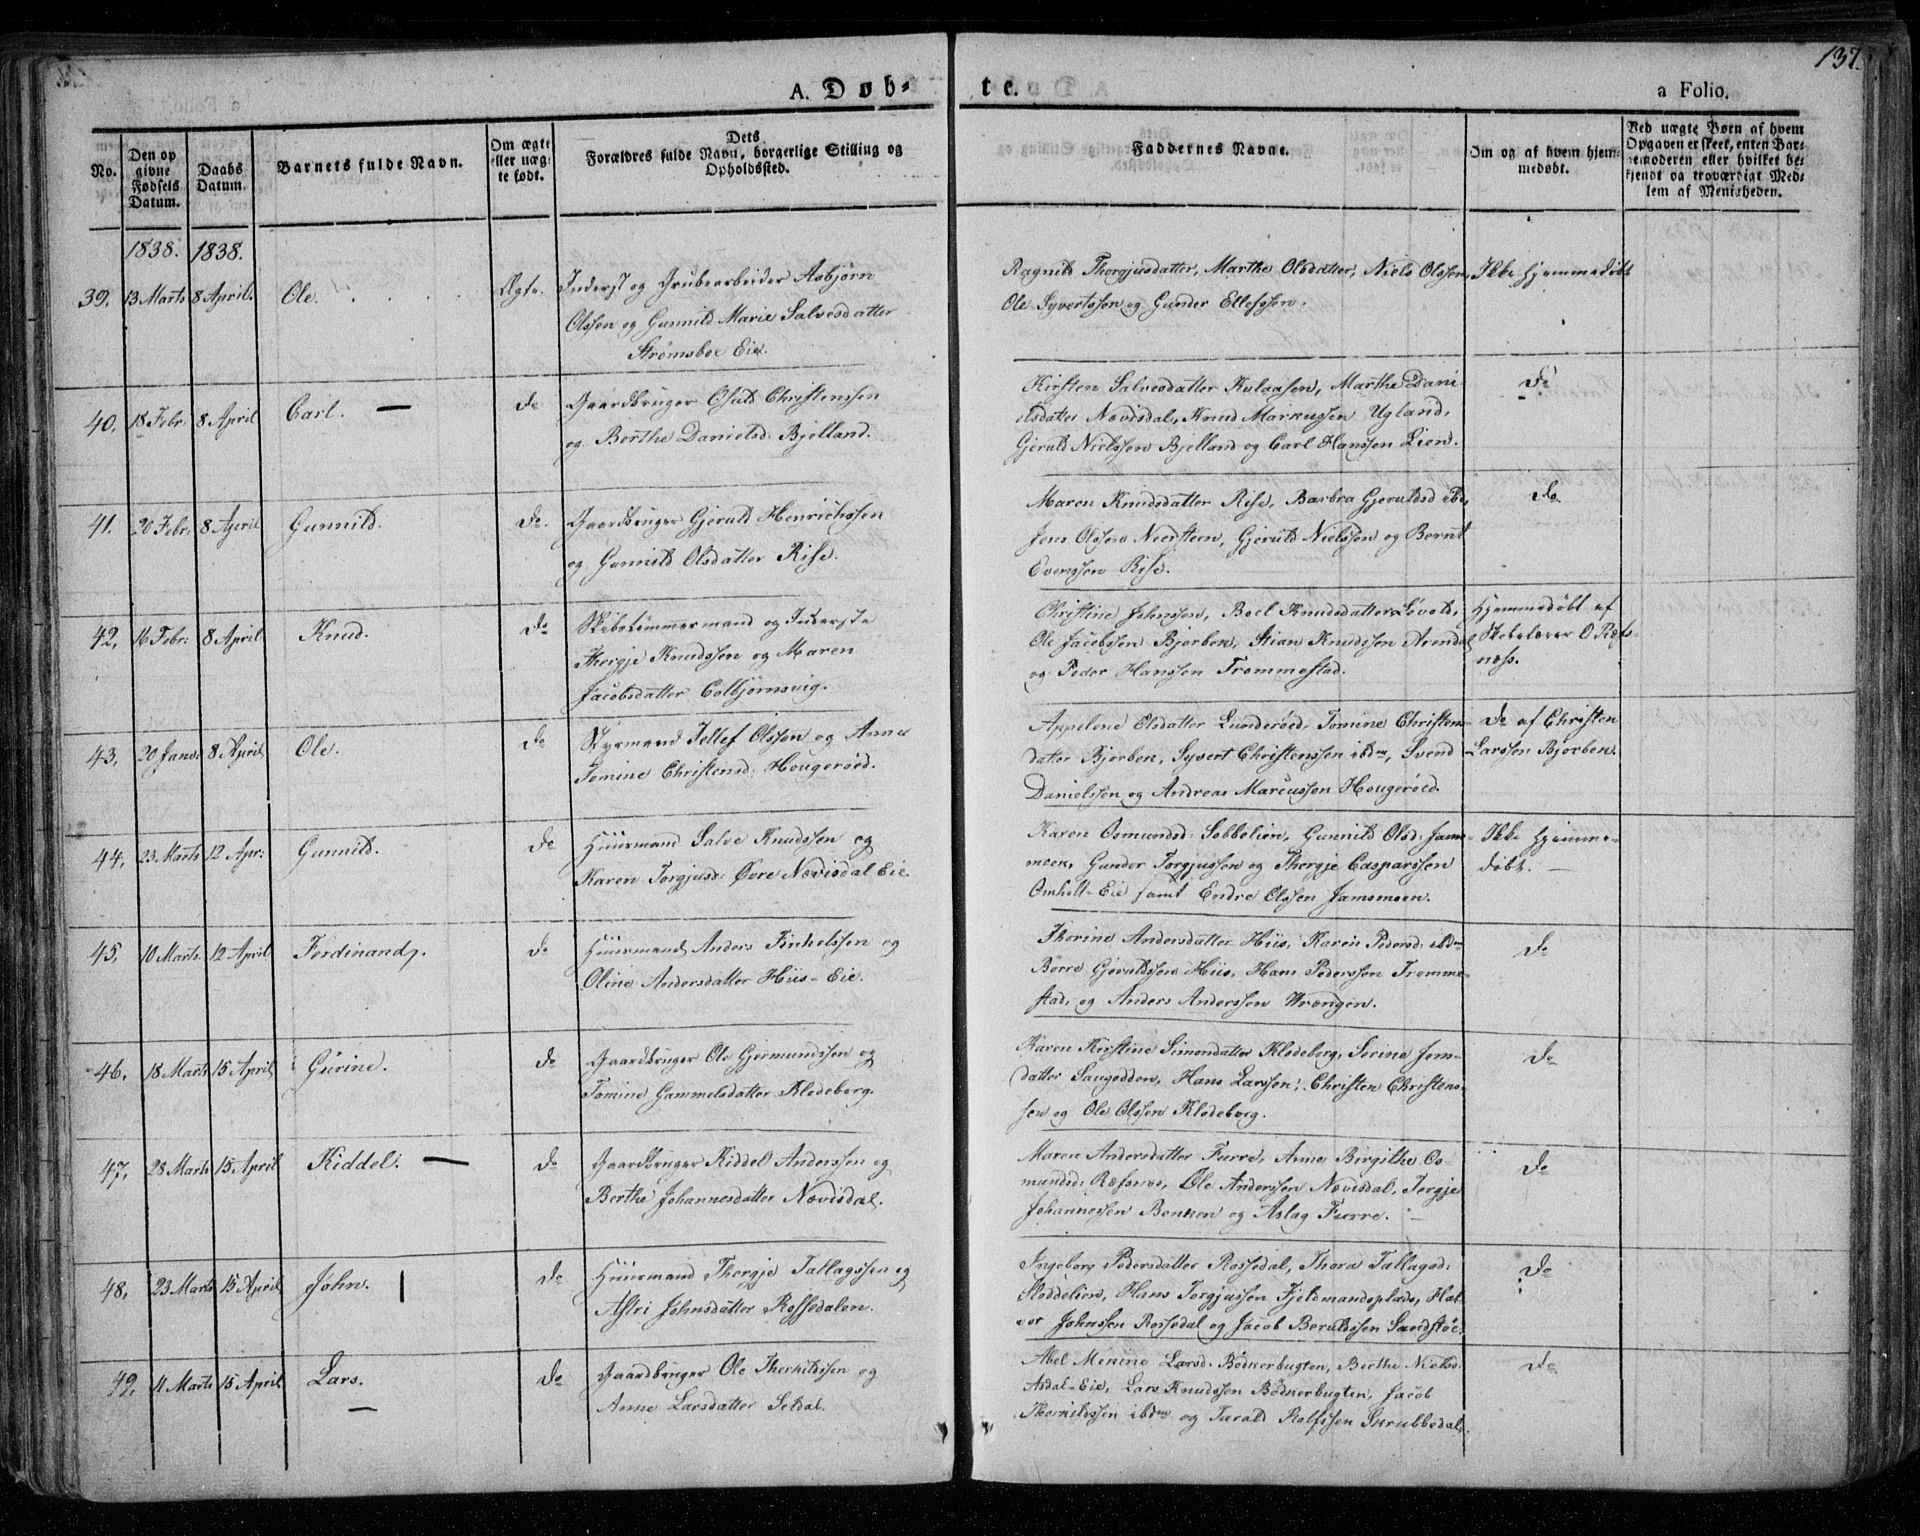 137.
A. Døb-
te.
a Folio.
No.
Den op
givne
Fødsels
Datum.
Daabs
Datum.
Barnets fulde Navn.
Om ægte
eller uæg-
te født.
Dets
Forældres fulde Navn, borgerlige Stilling og
Opholdssted.
Faddernes Navne.
Om og af hvem hjem-
medøbt.
Ved uægte Børn af hvem
Opgaven er skeet, enten Bar-
nemoderen eller hvilket be-
kjendt og troværdigt Med-
lem af Menigheden.
1838. 1838.
39. 13 Marts 8 April. Ole. Ægte. Inderst og Grubearbeider Asbjørn
Olssen og Gunnild Marie Salvesdatter
Strømsboe Eie.
Ragnild Thorgjusdatter, Marthe Olsdatter, Niels Olssen,
Ole Syvertssen og Gunder Ellefssen.
Ikke hjemmedøbt
40. 18 Febr 8 April Carl. — do Gaardbruger Osuld Christenssen
og Berthe Danielsd. Bjelland.
Kirsten Salvesdatter Aulaasen, Marthe Dani-
elsdatter Nævisdal, Knud Markussen Ugland,
Gjeruld Nielssen Bjelland og Carl Hanssen Lien.
do
41. 20 Febr: 8 April Gunnild. do. Gaardbruger Gjeruld Henrichssen
og Gunnild Olsdatter Rise.
Maren Knudsdatter Rise, Barbra Gjeruldsd ibd,
Jens Olssen Nedsteen, Gjeruld Nielssen og Bernt
Evenssen Rise.
do
42. 16 Febr: 8 April Knud. do Skibstømmermand og Inderste
Thergje Knudssen og Maren
Jacobsdatter Colbjørnsvig.
Christine Johnssen, Boel Knudsdatter Løvold,
Ole Jacobssen Bjorben, Stian Knudssen Arendal
og Peder Hanssen Trommestad.
Hjemmedøbt af
Skolelærer O Ræfs-
næss.
43. 20 Janr: 8 April Ole. do Styrmand Tellef Olssen og Anne
Tomine Christensd: Hougerøed.
Appelene Olsdatter Lunderøed, Tomine Christens-
datter Bjorben, Syvert Christenssen ibdm, Svend
Danielssen og Andreas Marcussen Hougerøed.
do af Christen
Larssen Bjorben.
44. 23 Marts 12 Apr: Gunnild. do Huusmand Salve Knudssen og
Karen Torgjusd: Øvre Nævisdal Eie
Karen Osmundsd: Sobbelien, Gunnild Olsd: Jams-
moen, Gunder Torgjussen og Thergje Casparssen
Omholt-Eie samt Endre Olssen Jamsmoen.
Ikke hjemme-
døbt. —
45. 10 Marts 12 April Ferdinand. do Huusmand Anders Finkelssen og
Oline Andersdatter Hiis-Eie.
Thorine Andersdatter Hiis, Karen Pedersd: ibdm
Børre Gjeruldssen Hiis, Hans Pederssen Tromme-
stad, og Anders Anderssen Vrængen.
do
46. 18 Marts 15 April Gurine. do Gaardbruger Ole Gjermundssen og
Tomine Gammelsdatter Klodeborg.
Karen Kirstine Simondatter Klodeborg, Serine Jens-
datter Saugodden, Hans Larssen, Christen Christens-
sen og Ole Olssen Klodeborg.
do
47. 28 Marts 15 April Kiddel. — do Gaardbruger Kiddel Anderssen og
Berthe Johannesdatter Nævisdal.
Maren Andersdatter Furre, Anne Birgithe Os-
mundsd: Ræfsnes, Ole Anderssen Nævisdal, Tergje
Johannessen Bonken og Aslag Furre. —
do
48. 23 Marts 15 April John. do Huusmand Thergje Tallagssen og
Astri Johnsdatter Rossedalen.
Ingeborg Pedersdatter Rossedal, Thora Tallagsd:
Støddelien, Hans Torgjussen Fjeldmandsplads, Hal-
vor Johnssen Rossedal og Jacob Beruldssen Sandstøe.
do
49. 11 Marts 15 April Lars. — do Gaardbruger Ole Therkildssen og
Anne Larsdatter Seldal.
Abel Menine Larsd. Bødkerbugten, Berthe Nielsd:
Asdal-Eie, Lars Knudssen Bødkerbugten, Jacob
Therkildssen ibdm og Tarald Rolfssen Skrubbedal.
do